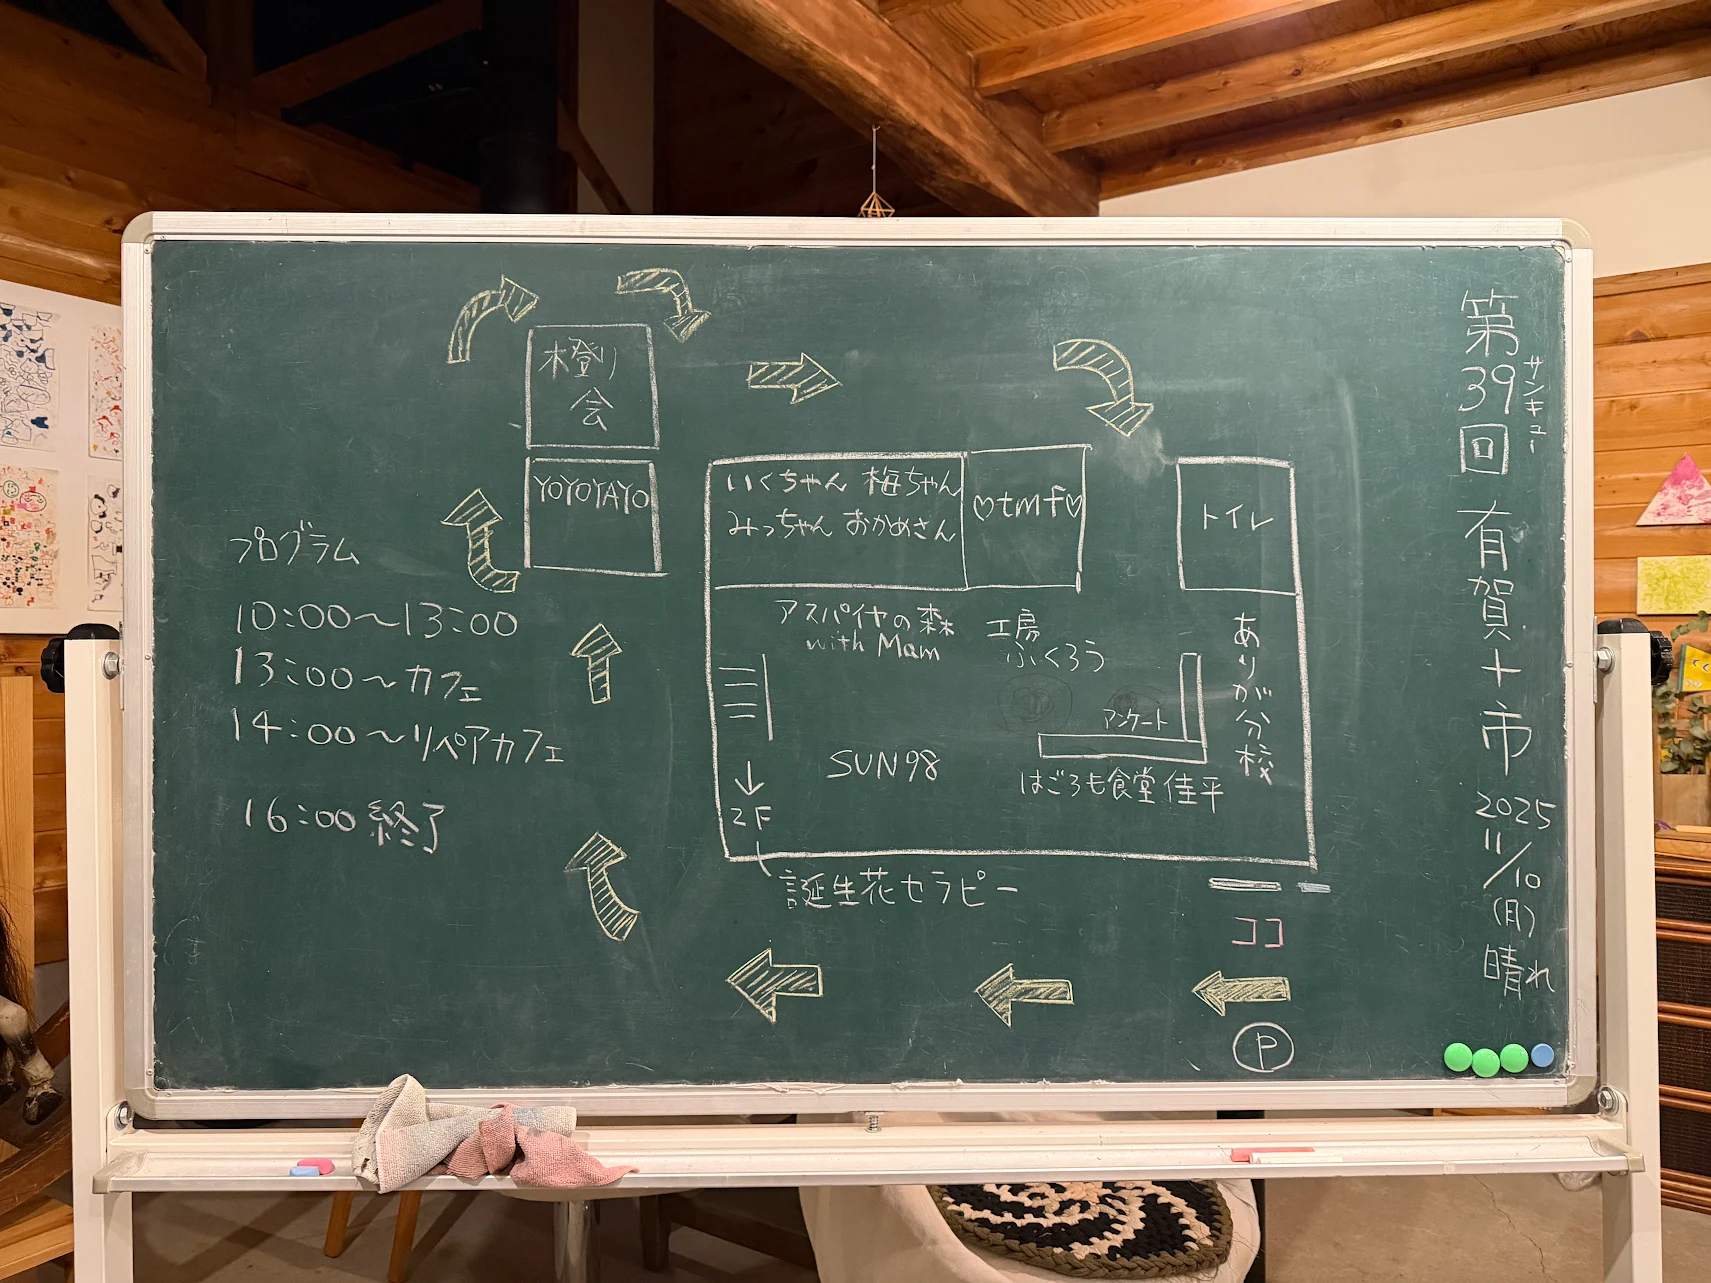 第39回 有賀十市
サンキュー
2025
11/10
(月)
晴れ
プログラム
10:00〜13:00
13:00〜カフェ
14:00〜リペアカフェ
16:00 終了
木登り
会
YOYOYAYO
いくちゃん 梅ちゃん
みっちゃん おかめさん
♡tmf♡
トイレ
アスパイヤの森
with Mam
工房
ふくろう
ありが分校
アンケート
SUN98
はごろも食堂 佳平
↓
2F
誕生花セラピー
ココ
P